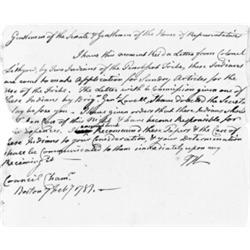 Gentlemen of the Senate & Gentlemen of the House of Representatives
I have this moment rec'd a Letter from Colonel
by two Indians of the Penobscot Tribe, these Indians
are come to make Application for Sundry Articles for the
Use of the Tribe. The Letter with a Commission given one of
these Indians by Brigr Genl Lovell, I have directed the Secretary
to lay before you. I have given orders that these Indians should
be taken Care of this & have become Responsible for
Expences. Recommend these Papers & the Case of
these Indians to your Consideration, & your Determination
thereon be Communicated to them immediately upon my
Receiving it
JH
Council Chamr
Boston 7 Feby 1781.